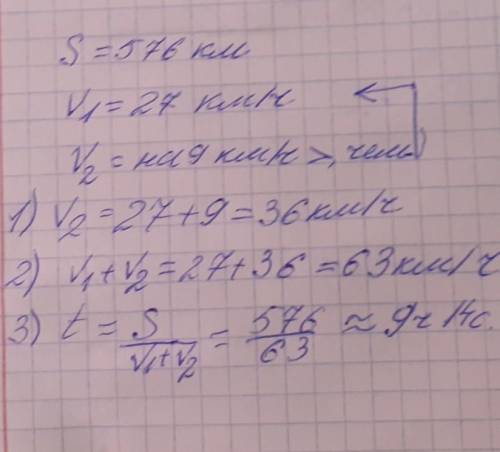 S = 576 км
V₁ = 27 км/ч
V₂ = на 9 км/ч >, чем
1) V₂ = 27 + 9 = 36 км/ч
2) V₁ + V₂ = 27 + 36 = 63 км/ч
3) t = S/(V₁ + V₂) = 576/63 ≈ 9ч 14с.